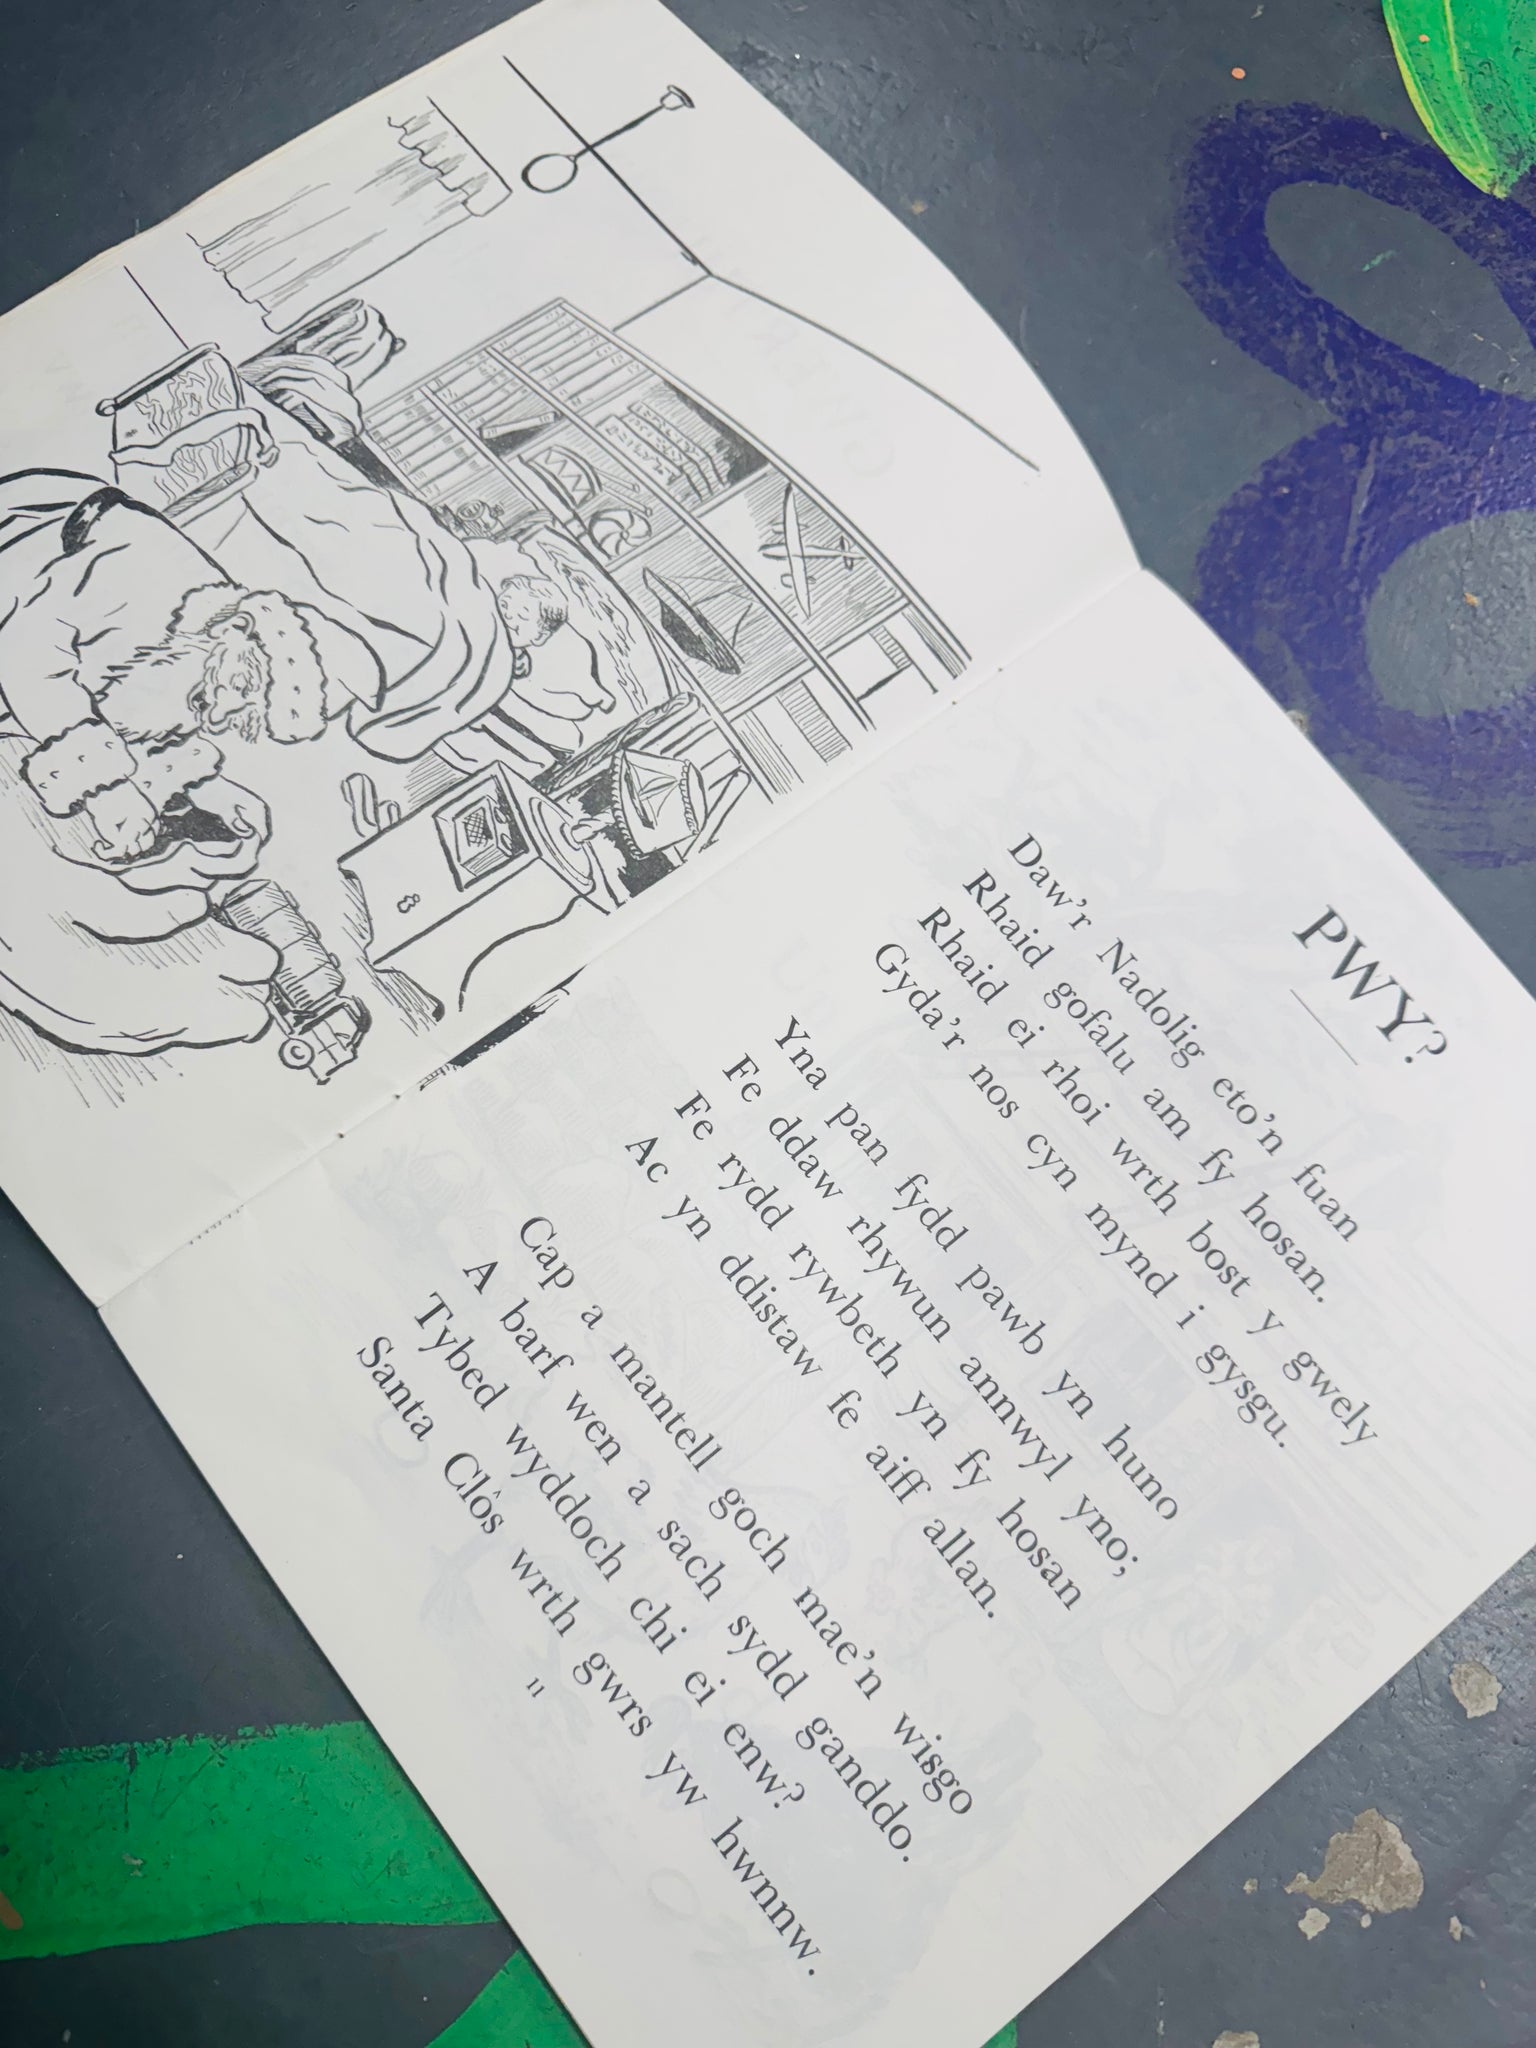 PWY?
Daw'r Nadolig eto'n fuan
Rhaid gofalu am fy hosan.
Rhaid ei rhoi wrth bost y gwely
Gyda'r nos cyn mynd i gysgu.
Yna pan fydd pawb yn huno
Fe ddaw rhywun annwyl yno;
Fe rydd rywbeth yn fy hosan
Ac yn ddistaw fe aiff allan.
Cap a mantell goch mae'n wisgo
A barf wen a sach sydd ganddo.
Tybed wyddoch chi ei enw?
Santa Clôs wrth gwrs yw hwnnw.
11